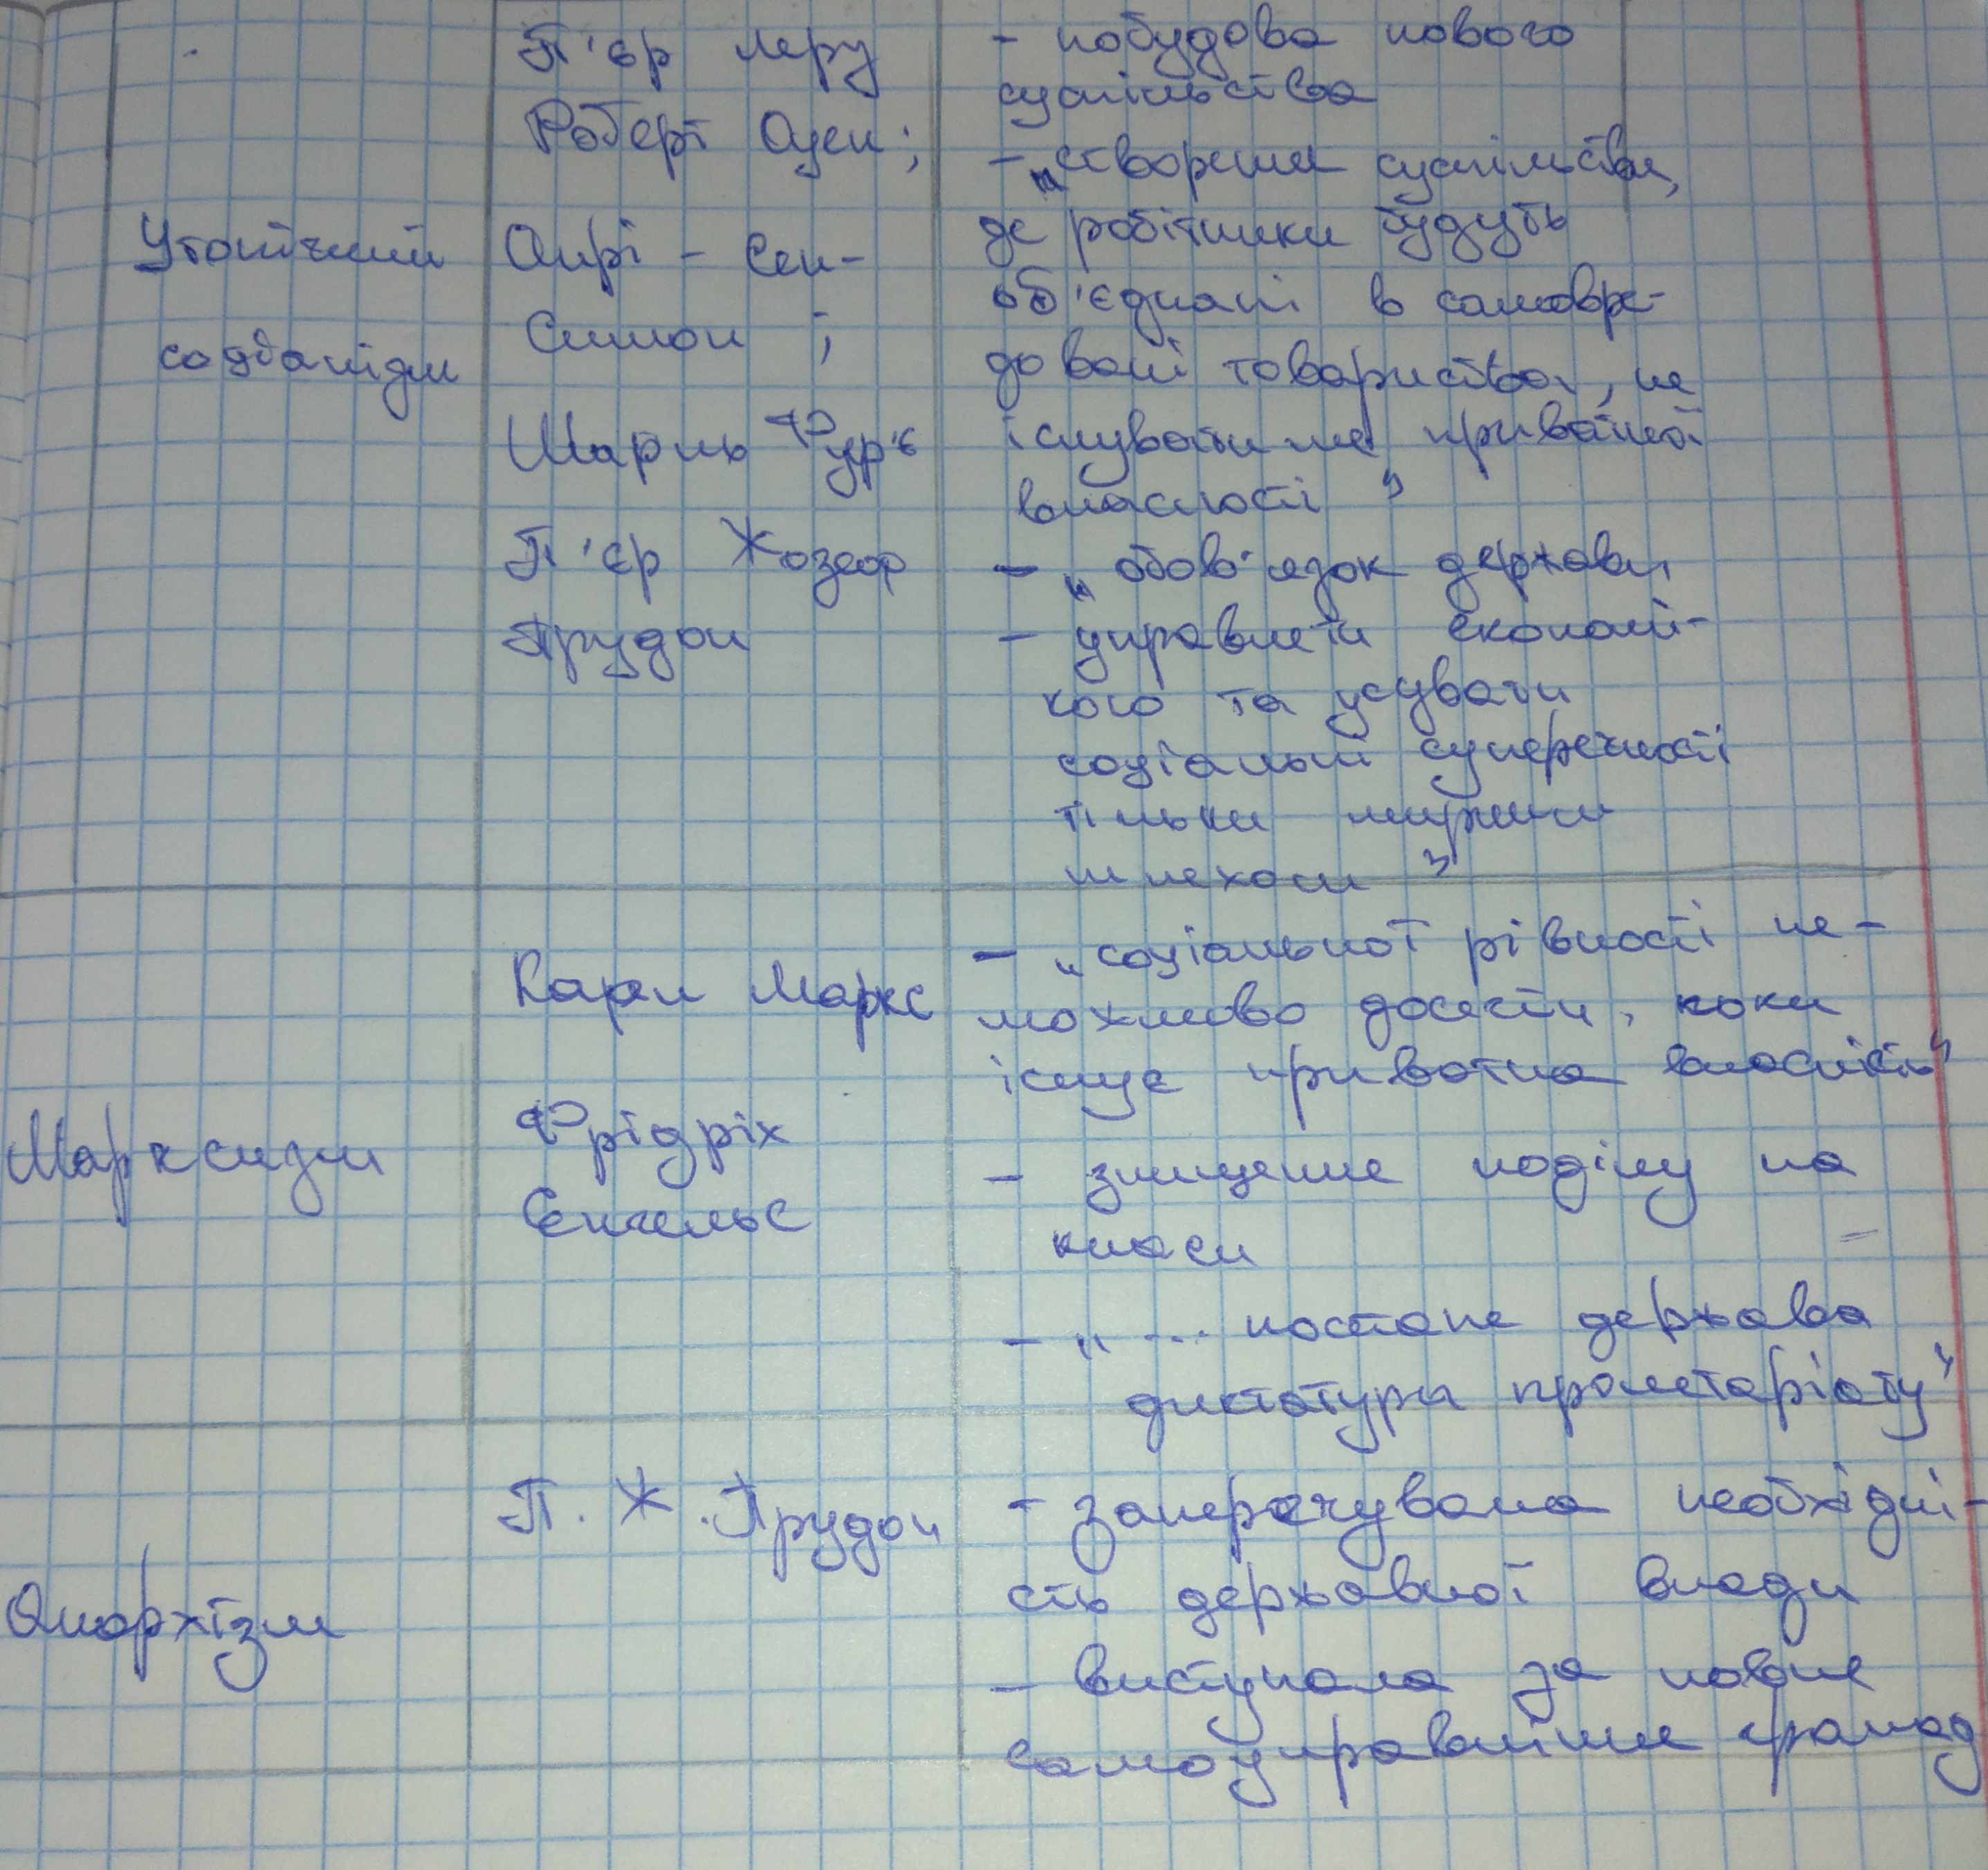 П'єр Леру
Роберт Оуен;
Утопічний
соціалізм
Анрі - Сен-
Симон ;
Шарль Фур'є
П'єр Жозеф
Прудон
- побудова нового
суспільства
- „створення суспільства,
де робітники будуть
об'єднані в самовря-
довані товариства, не
існуватиме приватної
власності"
- „обов'язок держави
- управляти економі-
кою та усувати
соціальні суперечності
тільки мирним
шляхом"
Марксизм
Карл Маркс
Фрідріх
Енгельс
- „соціальної рівності не-
можливо досягти, поки
існує приватна власність"
- знищення поділу на
класи
- „ ... постане держава
диктатури пролетаріату"
Анархізм
П. Ж. Прудон
- заперечувала необхідні-
сть державної влади
- виступала за повне
самоуправління громад